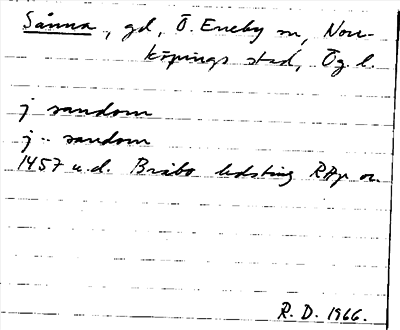 Sånna, gd, Ö. Eneby sn, Norr-
köpings stad, Ög. l.
j sandom
j sandom
1457 u.d. Bråbo hdsting RAp or.
R. D. 1966.